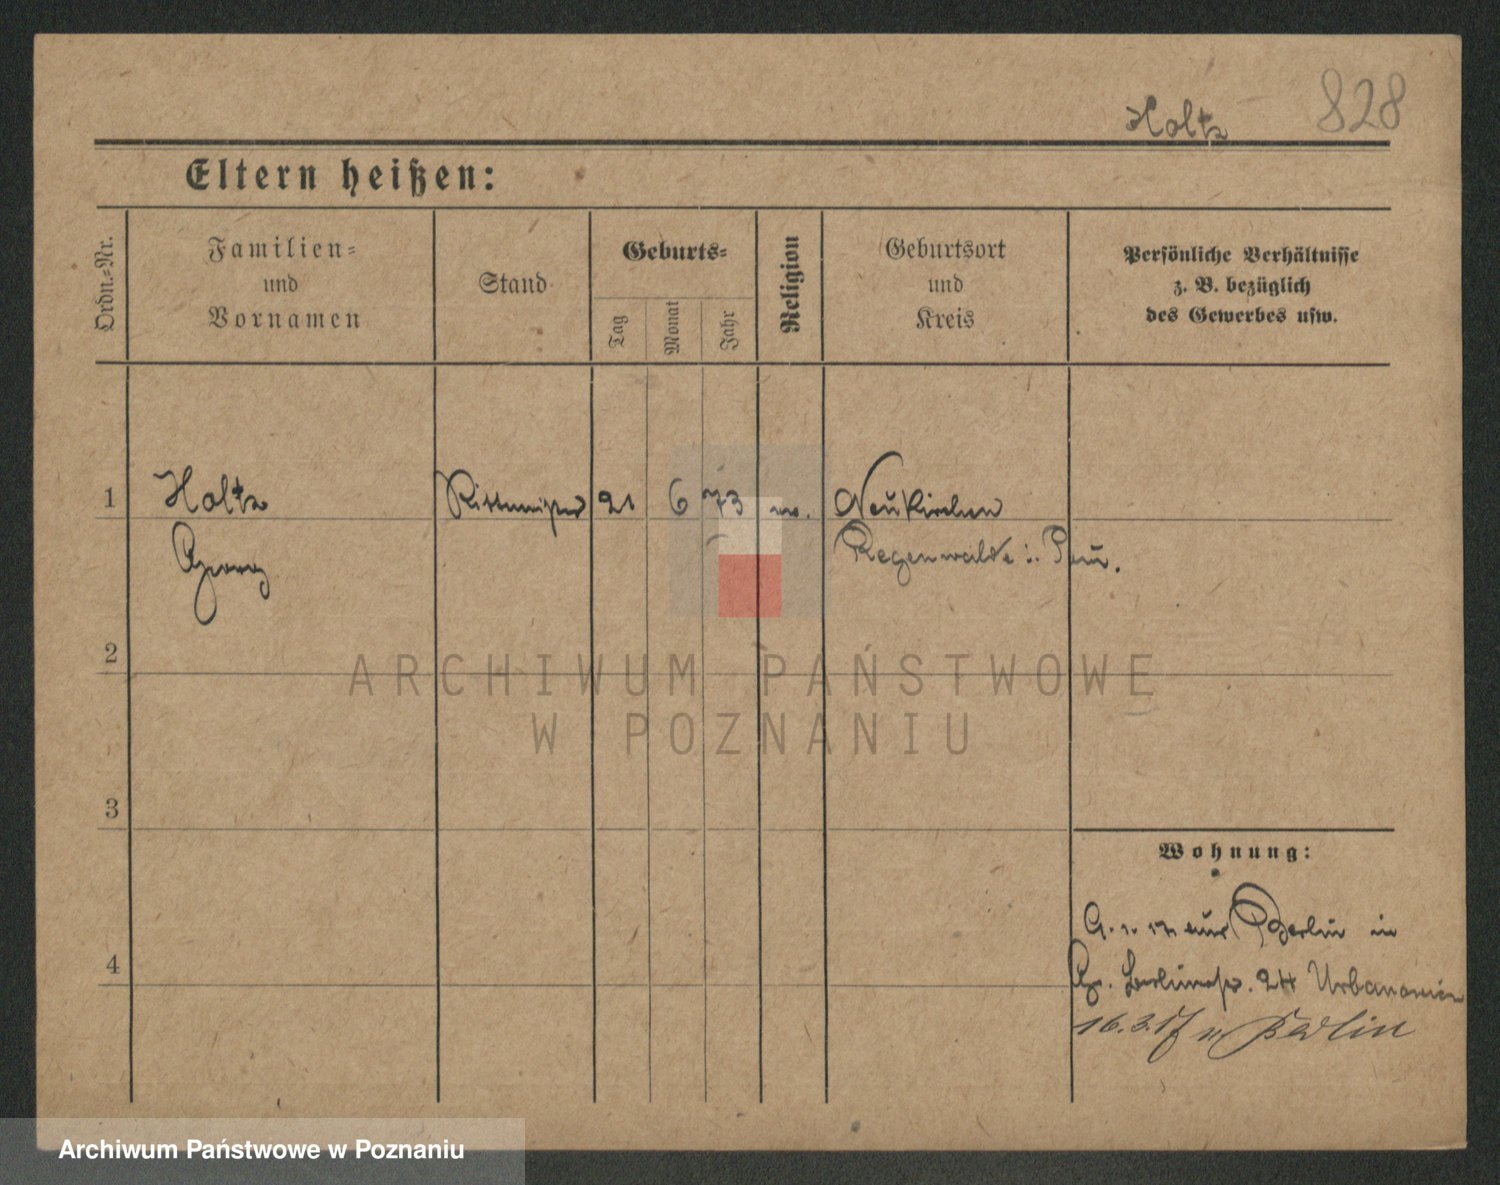 828
Holtz
Eltern heißen:
Ordn.=Nr.
Familien=
und
Vornamen
Stand
Geburts=
Tag
Monat
Jahr
Religion
Geburtsort
und
Kreis
Persönliche Verhältnisse
z. B. bezüglich
des Gewerbes usw.
1
Holtz
Rittmeister
21
6
73
ev.
Neukirchen
Georg
Regenwalde i. Pom.
2
3
4
Wohnung:
Berlin in
24 Urbanowien
16.3.17 n Berlin
ARCHIWUM PAŃSTWOWE
W POZNANIU
Archiwum Państwowe w Poznaniu